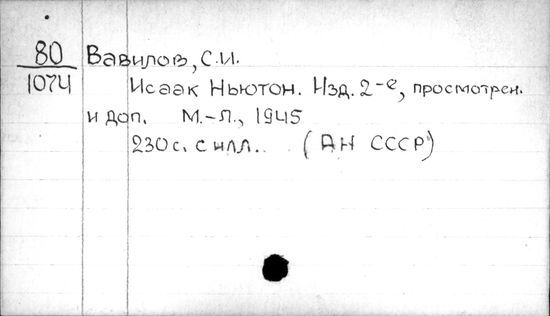 80 Вавилов, С.И.
1074 Исаак Ньютон. Изд. 2-е, просмотрен.
и доп. М.-Л., 1945
230 с. с илл. (АН СССР)